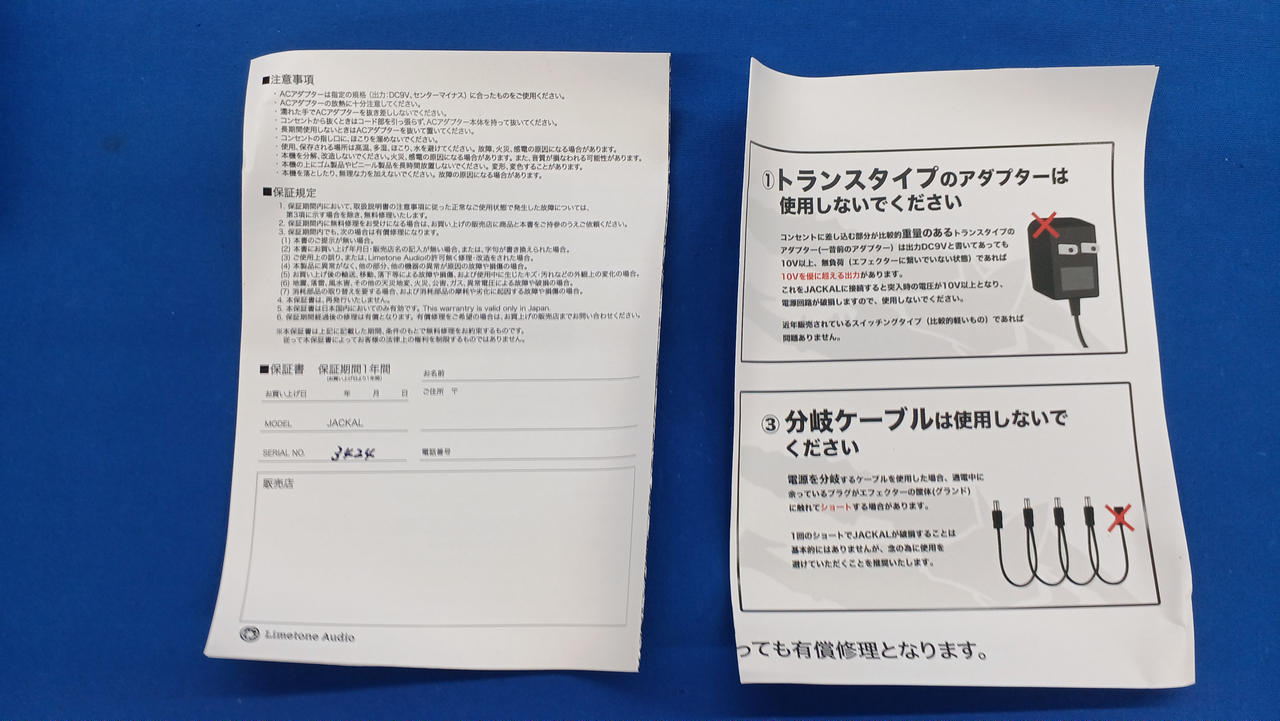 ■注意事項
・ACアダプターは指定の規格（出力：DC9V、センターマイナス）に合ったものをご使用ください。
・ACアダプターの放熱に十分注意してください。
・濡れた手でACアダプターを抜き差ししないでください。
・コンセントから抜くときはコード部を引っ張らず、ACアダプター本体を持って抜いてください。
・長期間使用しないときはACアダプターを抜いて置いてください。
・コンセントの指し口に、ほこりを溜めないでください。
・使用、保存される場所は高温、多湿、ほこり、水を避けてください。故障、火災、感電の原因になる場合があります。
・本機を分解、改造しないでください。火災、感電の原因になる場合があります。また、音質が損なわれる可能性があります。
・本機の上にゴム製品やビニール製品を長時間放置しないでください。変形、変色することがあります。
・本機を落としたり、無理な力を加えないでください。故障の原因になる場合があります。
■保証規定
1. 保証期間内において、取扱説明書の注意事項に従った正常なご使用状態で発生した故障については、
第3項に示す場合を除き、無料修理いたします。
2. 保証期間内に無料修理をお受けになる場合は、お買い上げの販売店に商品と本書をご持参のうえご依頼ください。
3. 保証期間内でも、次の場合は有償修理になります。
(1) 本書のご提示が無い場合。
(2) 本書にお買い上げ年月日・販売店名の記入が無い場合、または、字句が書き換えられた場合。
(3) ご使用上の誤り、または、Limetone Audioの許可無く修理・改造をされた場合。
(4) 本製品に異常がなく、他の部分、他の機器の異常が原因の故障や損傷の場合。
(5) お買い上げ後の輸送、移動、落下等による故障や損傷、および使用中に生じたキズ・汚れなどの外観上の変化の場合。
(6) 地震、落雷、風水害、その他の天災地変、火災、公害、ガス、異常電圧による故障や破損の場合。
(7) 消耗部品の取り替えを要する場合、および消耗部品の摩耗や劣化に起因する故障や損傷の場合。
4. 本保証書は、再発行いたしません。
5. 本保証書は日本国内においてのみ有効です。This warranty is valid only in Japan.
6. 保証期間経過後の修理は有償となります。有償修理をご希望の場合は、お買上げの販売店までお問い合わせください。
※本保証書は上記に記載した期間、条件のもとで無料修理をお約束するものです。
従って本保証書によってお客様の法律上の権利を制限するものではありません。
■保証書 保証期間1年間
（お買い上げ日より1年間）
お買い上げ日 年 月 日
MODEL JACKAL
SERIAL NO. 3K24
お名前
ご住所 〒
電話番号
販売店
Limetone Audio
①トランスタイプのアダプターは
使用しないでください
コンセントに差し込む部分が比較的重量のあるトランスタイプの
アダプター(一昔前のアダプター）は出力DC9Vと書いてあっても
10V以上、無負荷（エフェクターに繋いでいない状態）であれば
10Vを優に超える出力があります。
これをJACKALに接続すると突入時の電圧が10V以上となり、
電源回路が破損しますので、使用しないでください。
近年販売されているスイッチングタイプ（比較的軽いもの）であれば
問題ありません。
③分岐ケーブルは使用しないで
ください
電源を分岐するケーブルを使用した場合、通電中に
余っているプラグがエフェクターの筐体(グランド)
に触れてショートする場合があります。
1回のショートでJACKALが破損することは
基本的にはありませんが、念の為に使用を
避けていただくことを推奨いたします。
っても有償修理となります。